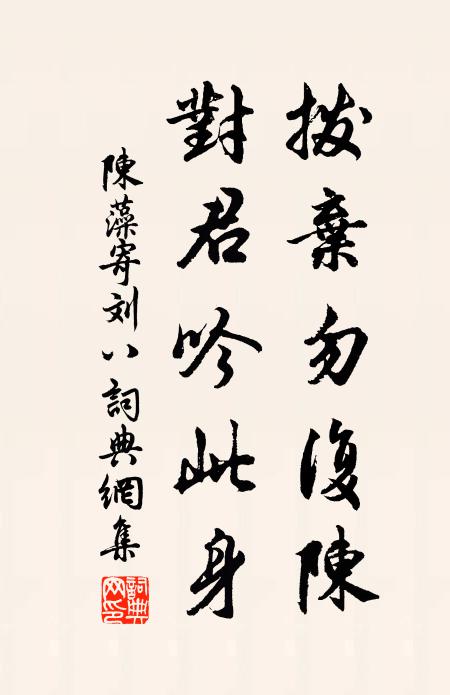 拨棄勿復陳
對君吟此身
陳藻寄刘八詞典網集
詞典网印